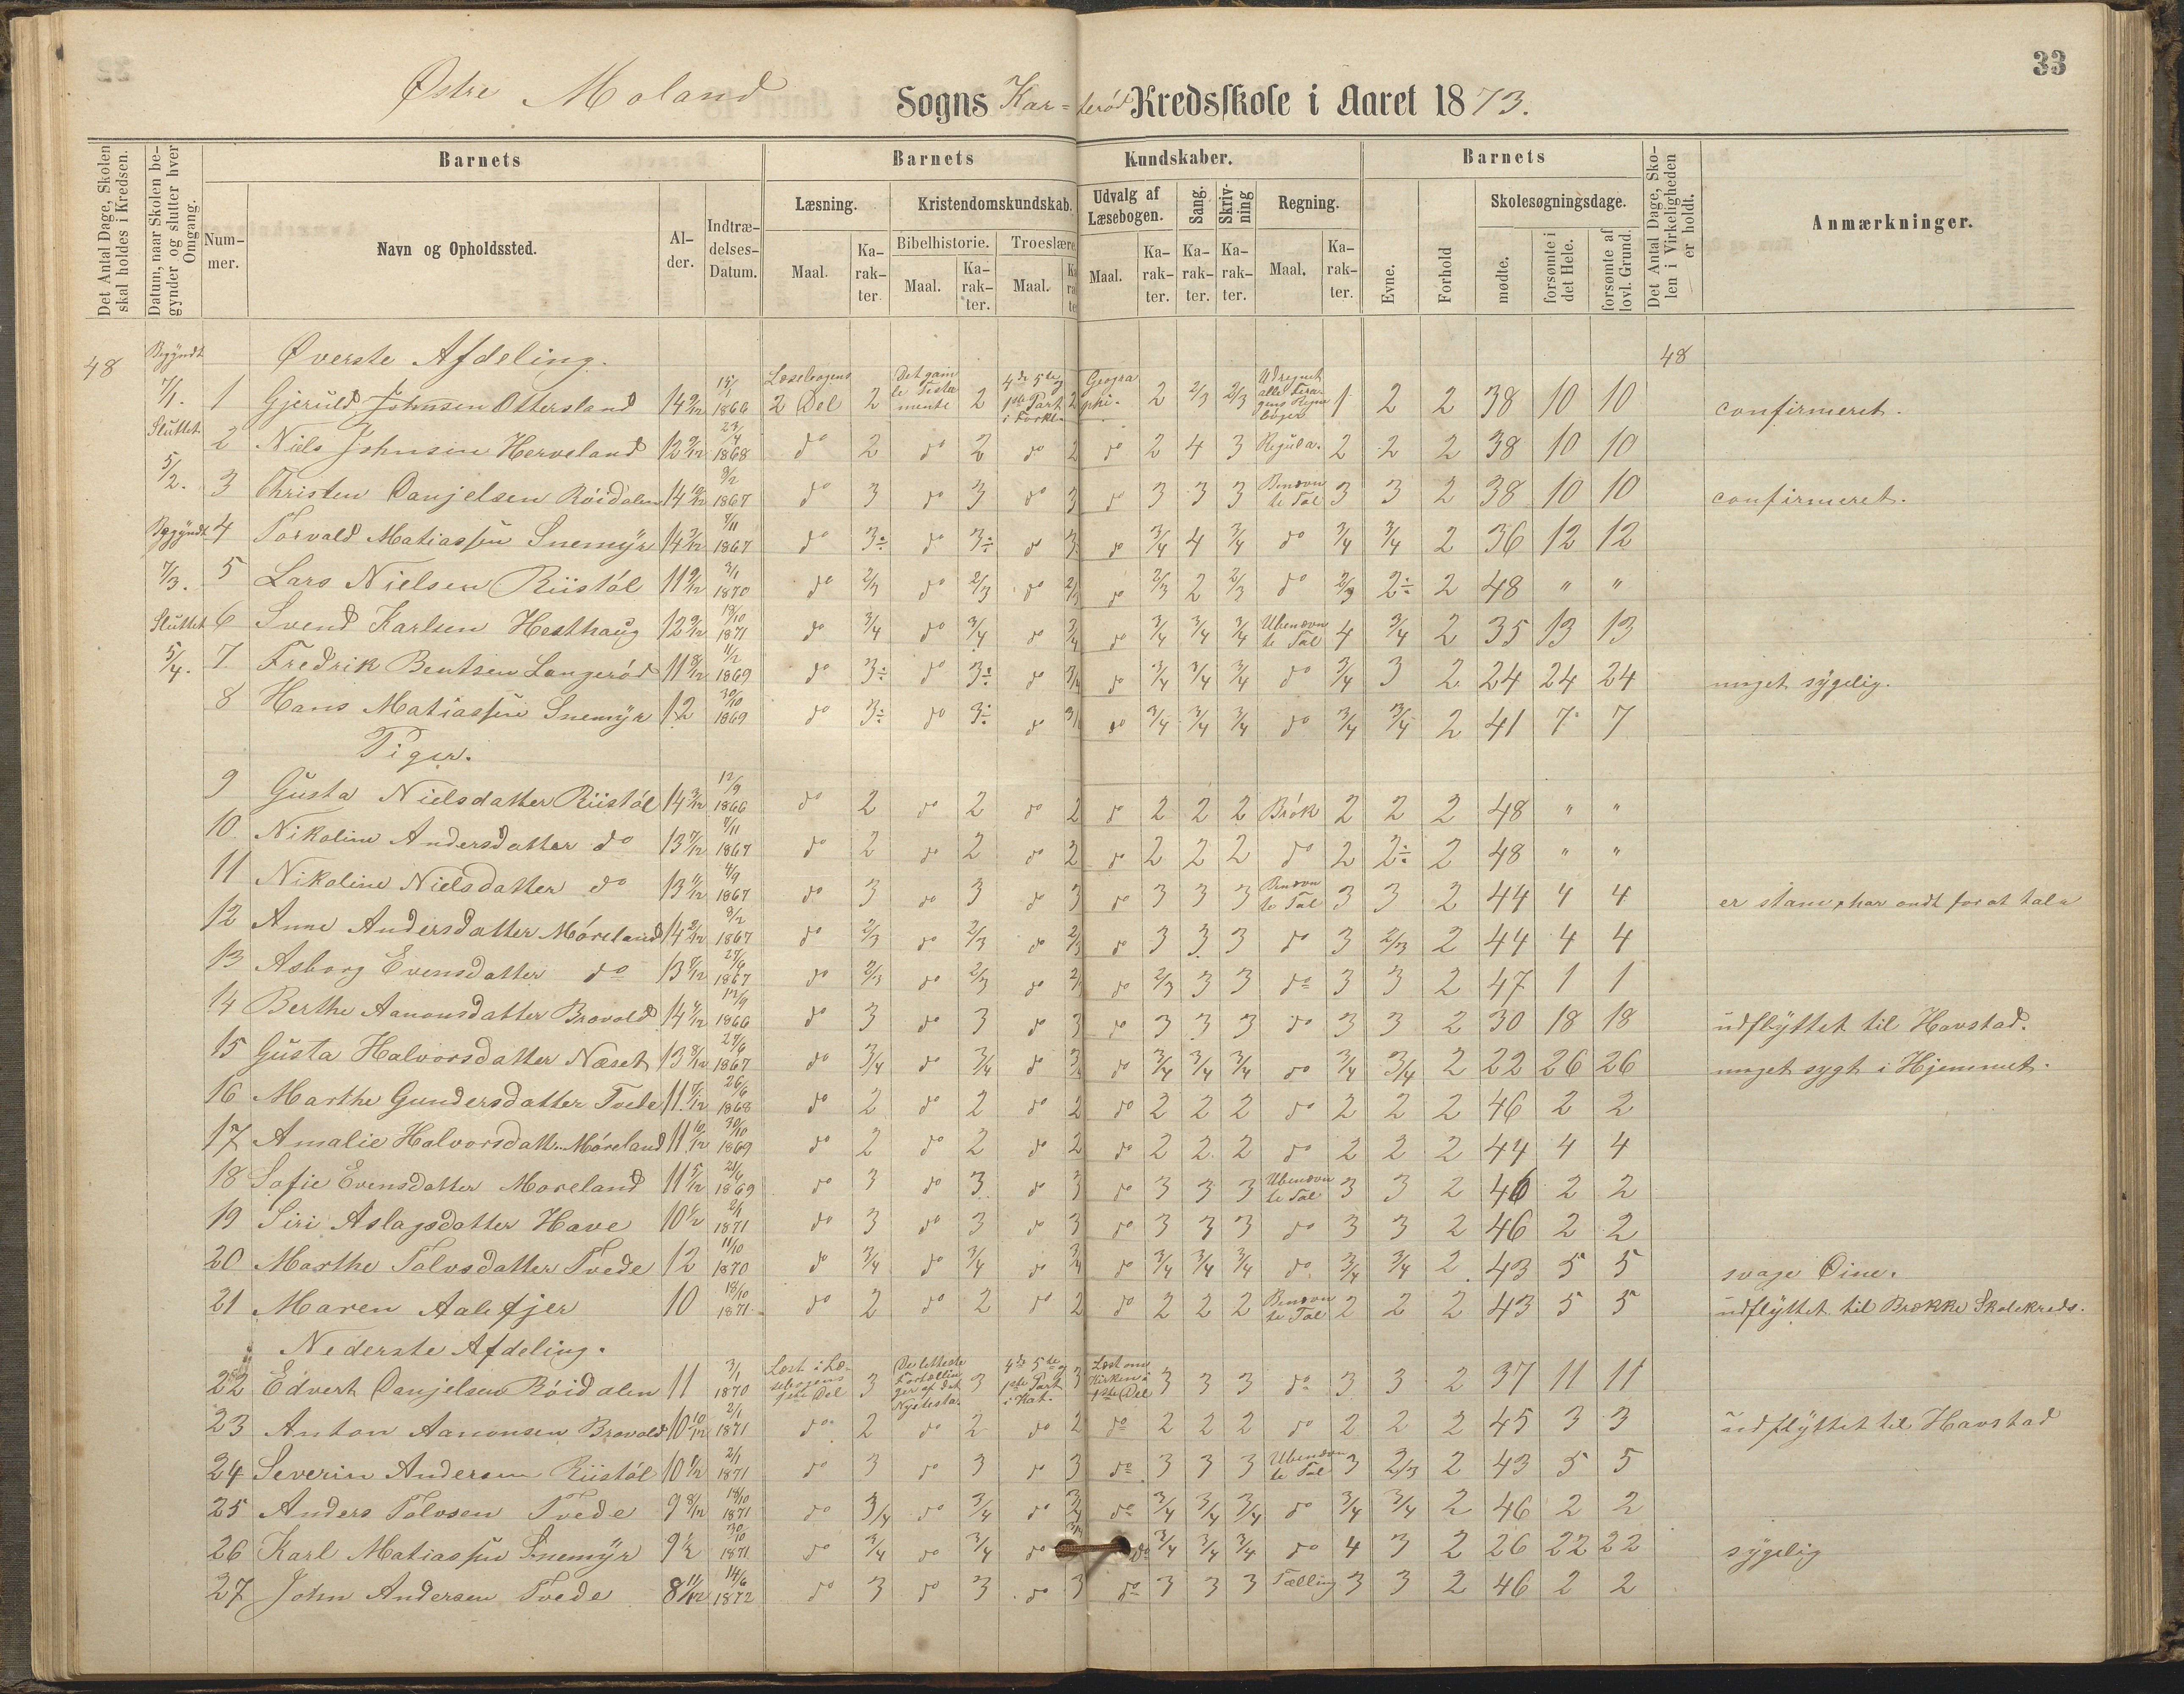 33
Østre Moland Sogns Kar=terød Kredsskole i Aaret 1873.
Det Antal Dage, Skolen skal holdes i Kredsen.
Datum, naar Skolen begynder og slutter hver Omgang.
Barnets
Barnets Kundskaber.
Barnets
Det Antal Dage, Skolen i Virkeligheden er holdt.
Anmærkninger.
Nummer.
Navn og Opholdssted.
Alder.
Indtrædelses-Datum.
Læsning.
Kristendomskundskab.
Udvalg af Læsebogen.
Sang.
Skrivning
Regning.
Evne.
Forhold
Skolesøgningsdage.
Bibelhistorie.
Troeslære
Maal. Karakter. Maal. Karakter. Maal. Karakter Maal. Karakter. Karakter. Karakter. Maal. Karakter.
mødte. forsømte i det Hele. forsømte af lovl. Grund.
48 Begyndt Øverste Afdeling. 48
7/1. 1 Gjeruld Johnsen Ottersland 14 9/12 15/ 1866 Læsebogens 2 Del 2 Det gamle Testamente 2 4de 5te og 1ste Part i Forkl. 2 Geographi. 2 2/3 2/3 Udregnet alle 1 2 2 38 10 10 confirmeret.
Sluttet 2 Niels Johnsen Herveland 12 9/12 23/4 1868 do 2 do 2 do 2 do 2 4 3 Regula. 2 2 2 38 10 10
5/2. 3 Christen Danjelsen Róidalen 14 10/12 9/2 1867 do 3 do 3 do 3 do 3 3 3 Benævnte Tal 3 3 2 38 10 10 confirmeret.
Begyndt 4 Torvald Matiassen Snemÿr 14 3/12 7/11 1867 do 3÷ do 3÷ do 3 do 3/4 4 3/4 do 3/4 3/4 2 36 12 12
7/3. 5 Lars Nielsen Riistól 11 9/12 3/1 1870 do 2/3 do 2/3 do 2/3 do 2/3 2 2/3 do 2/3 2÷ 2 48 " "
Sluttet 6 Svend Karlsen Hesthaug 12 9/12 18/10 1871 do 3/4 do 3/4 do 3/4 do 3/4 3/4 3/4 Ubenævnte Tal 4 3/4 2 35 13 13
5/4. 7 Fredrik Bentsen Langerød 11 8/12 11/2 1869 do 3÷ do 3÷ do 3/4 do 3/4 3/4 3/4 do 3/4 3 2 24 24 24 meget sÿgelig.
8 Hans Matiassen Snemÿr 12 30/10 1869 do 3÷ do 3÷ do 3/4 do 3/4 3/4 3/4 do 3/4 3/4 2 41 7 7
Piger.
9 Gusta Nielsdatter Riistól 14 3/12 12/9 1866 do 2 do 2 do 2 do 2 2 2 Brók 2 2 2 48 " "
10 Nikoline Andersdatter do 13 7/12 7/11 1867 do 2 do 2 do 2 do 2 2 2 do 2 2÷ 2 48 " "
11 Nikoline Nielsdatter do 13 11/12 4/9 1867 do 3 do 3 do 3 do 3 3 3 Benævnte Tal 3 3 2 44 4 4 er stam, har ondt for at tale
12 Anne Andersdatter Móreland 14 2/12 9/2 1867 do 2/3 do 2/3 do 2/3 do 3 3 3 do 3 2/3 2 44 4 4
13 Asborg Evensdatter do 13 8/12 27/6 1867 do 2/3 do 2/3 do 2/3 do 2/3 3 3 do 3 3 2 47 1 1
14 Berthe Aanonsdatter Brovold 14 4/12 12/9 1866 do 3 do 3 do 3 do 3 3 3 do 3 3 2 30 18 18 udflÿttet til Havstad.
15 Gusta Halvorsdatter Næset 13 8/12 27/6 1867 do 3/4 do 3/4 do 3/4 do 3/4 3/4 3/4 do 3/4 3/4 2 22 26 26 meget sygt i Hjemmet.
16 Marthe Gundersdatter Tvede 11 7/12 26/6 1868 do 2 do 2 do 2 do 2 2 2 do 2 2 2 46 2 2
17 Amalie Halvorsdatt. Móreland 11 10/12 30/10 1869 do 2 do 2 do 2 do 2 2 2 do 2 2 2 44 4 4
18 Sofie Evensdatter Moreland 11 5/12 21/6 1869 do 3 do 3 do 3 do 3 3 3 Ubenævnte Tal 3 3 2 46 2 2
19 Siri Aslagsdatter Have 10 1/2 2/1 1871 do 3 do 3 do 3 do 3 3 3 do 3 3 2 46 2 2
20 Marthe Tolvsdatter Tvede 12 11/10 1870 do 3/4 do 3/4 do 3/4 do 3/4 3/4 3/4 do 3/4 3/4 2 43 5 5 svage Öine.
21 Maren Aalefjer 10 18/10 1871 do 2 do 2 do 2 do 2 2 2 Benævnte Tal 2 2 2 43 5 5 udflÿttet til Brække Skolekreds.
Nederste Afdeling.
22 Edvert Danjelsen Róidalen 11 3/1 1870 Læst i Læsebogens 1ste Del 3 De letteste Fortællinger af det Nyetesta. 3 4de 5te og 1ste Part i Kat. 3 Læst om Kirken i 1ste Del 3 3 3 do 3 3 2 37 11 11
23 Anton Aanonsen Brovold 10 10/12 2/1 1871 do 2 do 2 do 2 do 2 2 2 do 2 2 2 45 3 3 udflÿttet til Havstad
24 Severin Andersen Riistól 10 8/12 2/1 1871 do 3 do 3 do 3 do 3 3 3 Ubenævnte Tal 3 2/3 2 43 5 5
25 Anders Tolvsen Tvede 9 8/12 18/10 1871 do 3/4 do 3/4 do 3/4 do 3/4 3/4 3/4 do 3/4 3/4 2 46 2 2
26 Karl Matiassen Snemÿr 9 1/2 30/10 1871 do 3/4 do 3/4 do 3/4 do 3/4 3/4 3/4 do 4 3 2 26 22 22 sÿgelig
27 John Andersen Tvede 8 11/12 14/6 1872 do 3 do 3 do 3 do 3 3 3 Tælling 3 3 2 46 2 2